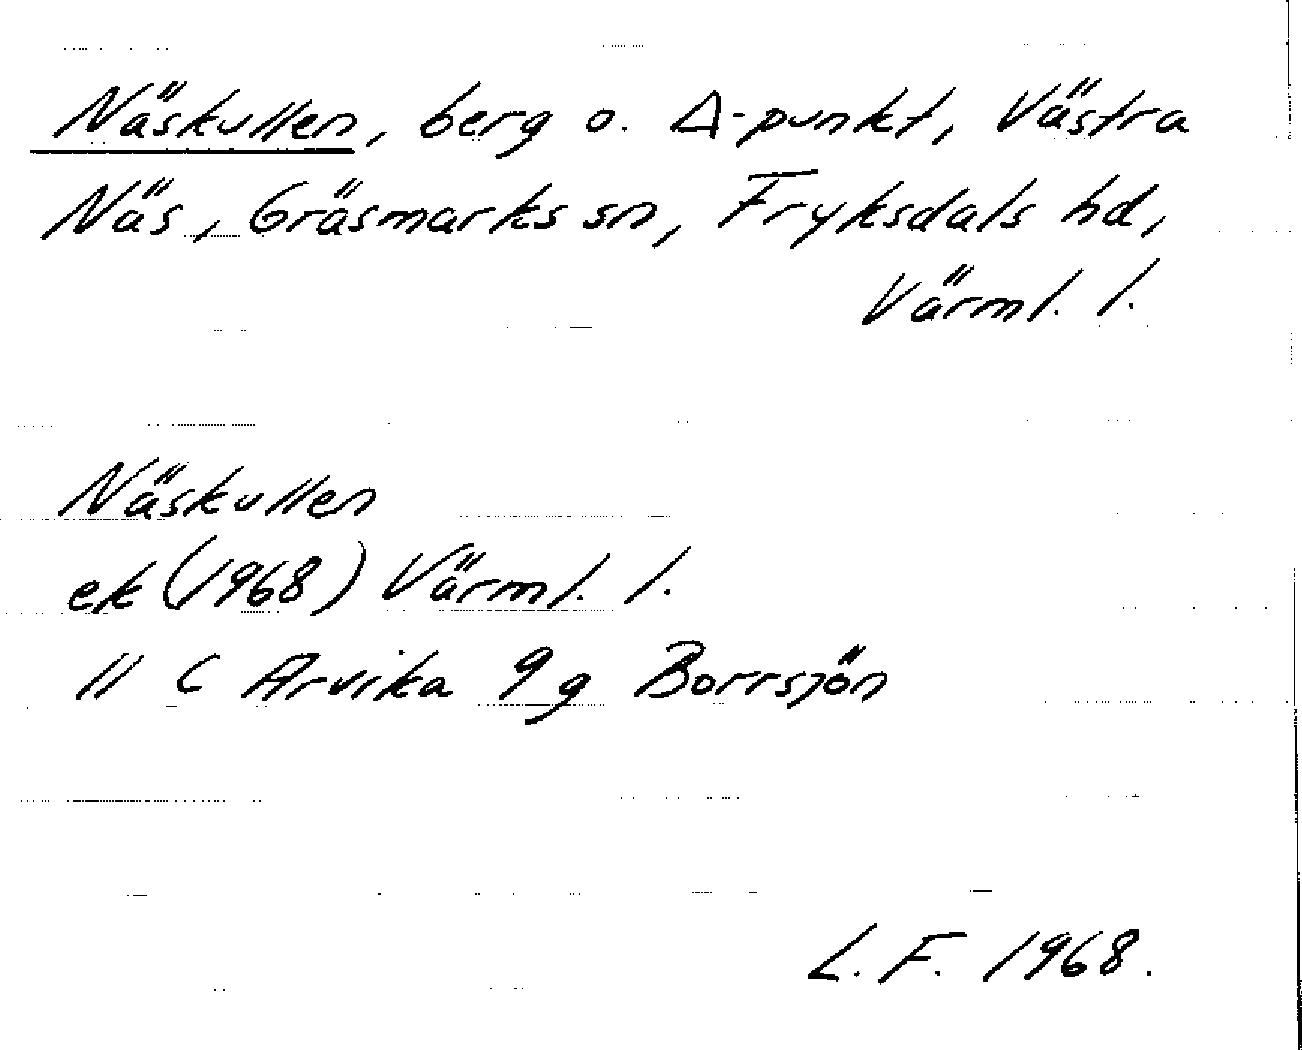 Näskullen, berg o. Δ-punkt, Västra
Näs, Gräsmarks sn, Fryksdals hd,
Värml. l.
Näskullen
ek (1968) Värml. l.
11 C Arvika 9g Borrsjön
L. F. 1968.